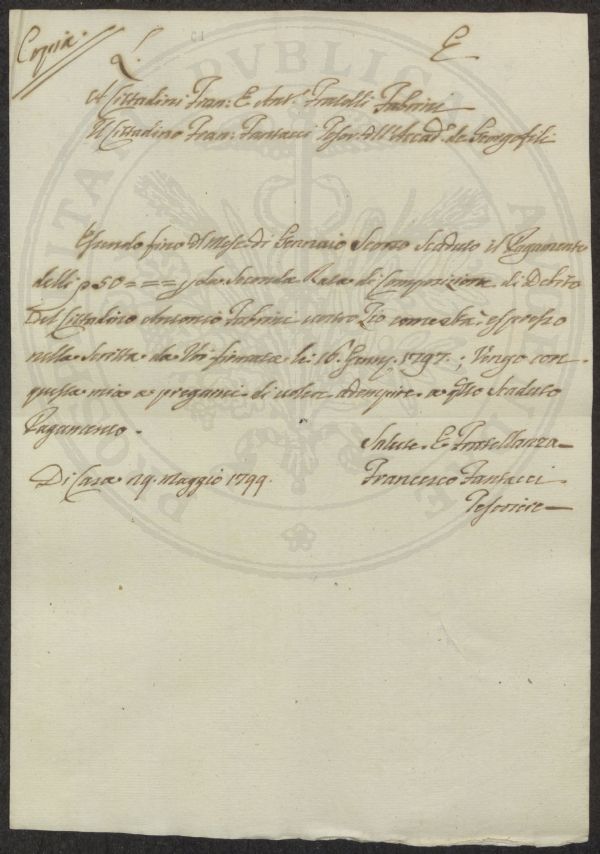 Copia.
L. E
A Cittadini Fran: E Ant.o Fratelli Fabrini
Il Cittadino Fran: Fantacci Tesor. dell'Accad.a de Georgofili
Essendo fino dal Mese di Gennaio Scorso Scaduto il Pagamento
delli p 50 = = = della Seconda Rata di Composizione di Debito
Del Cittadino Antonio Fabrini vostro Zio come sta espresso
nella Scritta da Voi firmata li 16. 1797., Vengo con
questa mia a pregarvi di volere adempire a q.to Scaduto
Pagamento.
Salute E Fratellanza
Di Casa 29. Maggio 1799.
Francesco Fantacci
Tesoriere
PUBLICA
PROSPERITATI AUGENDAE